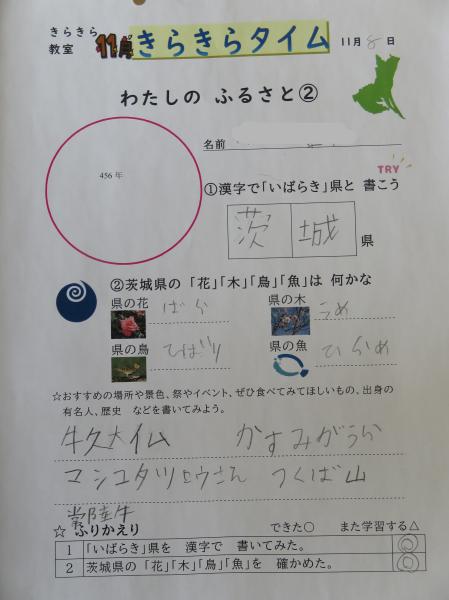 きらきら
教室
11月 きらきらタイム 11月 8 日
わたしの ふるさと②
名前
456年
TRY
①漢字で「いばらき」県と 書こう
茨 城 県
②茨城県の 「花」「木」「鳥」「魚」は 何かな
県の花 ばら 県の木 うめ
県の鳥 ひばり 県の魚 ひらめ
☆おすすめの場所や景色、祭やイベント、ぜひ食べてみてほしいもの、出身の
有名人、歴史 などを書いてみよう。
牛久大仏 かすみがうら
マシコタツロウさん つくば山
常陸牛
☆ ふりかえり できた○ また学習する△
1 「いばらき」県を 漢字で 書いてみた。 ◎
2 茨城県の 「花」「木」「鳥」「魚」を 確かめた。 ◎